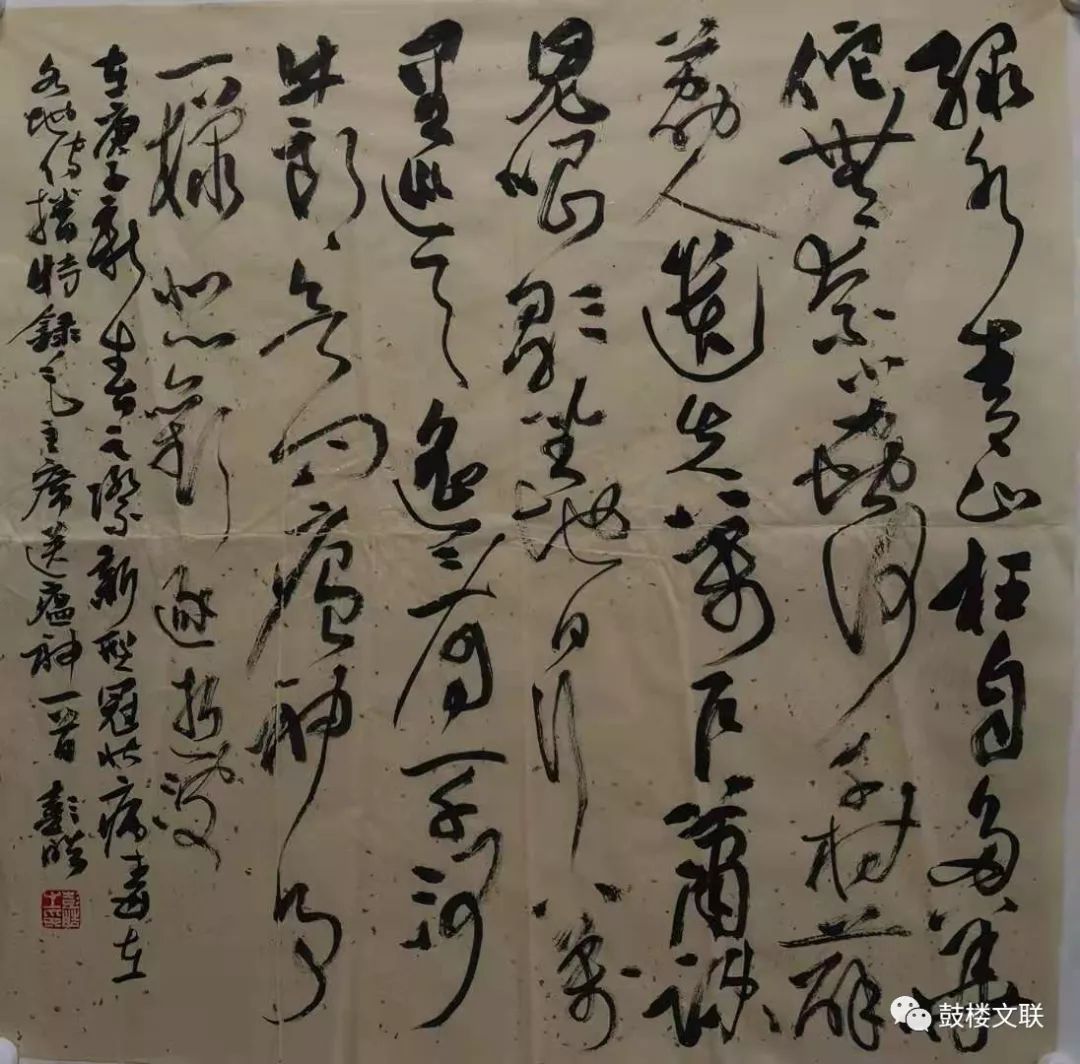 緑水青山枉自多華
佗無奈小蟲何千村薜
荔人遺矢萬户蕭疎
鬼唱歌坐地日行八萬
里巡天遥看一千河
牛郎欲问瘟神事
一樣悲歡逐逝波
在庚子新春之際新型冠状病毒在
各地传播特録毛主席送瘟神一首 彭
鼓楼文联